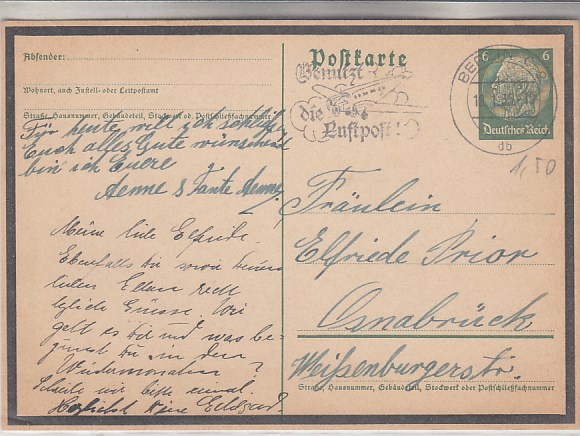 Absender:
Wohnort, auch Zustell- oder Leitpostamt
Straße, Hausnummer, Gebäudeteil, Stockwerk od. Postschließfachnummer
Für heute will ich schließen
Euch alles Gute wünschend
bin ich Euere
Aenne & Tante Aenne
Meine liebe Elfriede.
Ebenfalls Dir sowie Deinen
lieben Eltern recht
herzliche Grüsse. Wie
geht es Dir und was be-
ginnst Du in den
Wintermonaten?
Schreibe mir bitte einmal.
Herzlichst Deine
Postkarte
Benutzt
die
Luftpost!
BERLIN
db
6 6
Deutsches Reich
1,50
Fräulein
Elfriede Prior
Osnabrück
Weißenburgerstr.
Straße, Hausnummer, Gebäudeteil, Stockwerk oder Postschließfachnummer